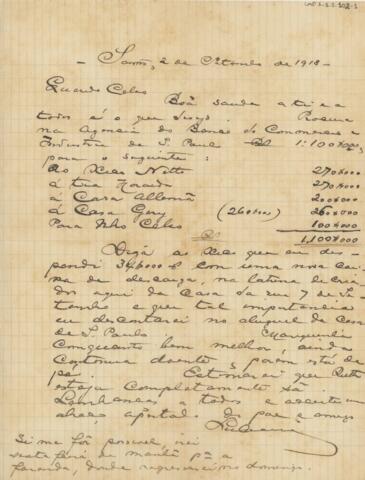 2 de Setembro de 1918 -
Querido Celso
Boa saude a ti e a
todos é o que desejo. Procura
na Agencia do Banco do Commercio e
Industria de S. Paulo 1:100$000,
para o seguinte:
270$000
á tua 270$000
á Casa Allemã 200$000
á Casa (260$000) 260$000
Para Nhô Celso 100$000
1,100$000
Diga ao que eu des-
pendi com uma nova
de descarga, na latrina de cria-
dos aqui da casa da rua 7 de Se-
tembro e que tal importancia
eu descontarei no aluguel da casa
de S. Paulo.
Comquanto bem melhor, ainda
continua doente, porém está de
pé. Estimarei que Ruth
esteja completamente sã.
Lembranças a todos e acceita um
abraço apertado do pae e amigo
Si me fôr possivel, irei
sexta feira de manhã pª a
fazenda, donde regressarei no domingo.